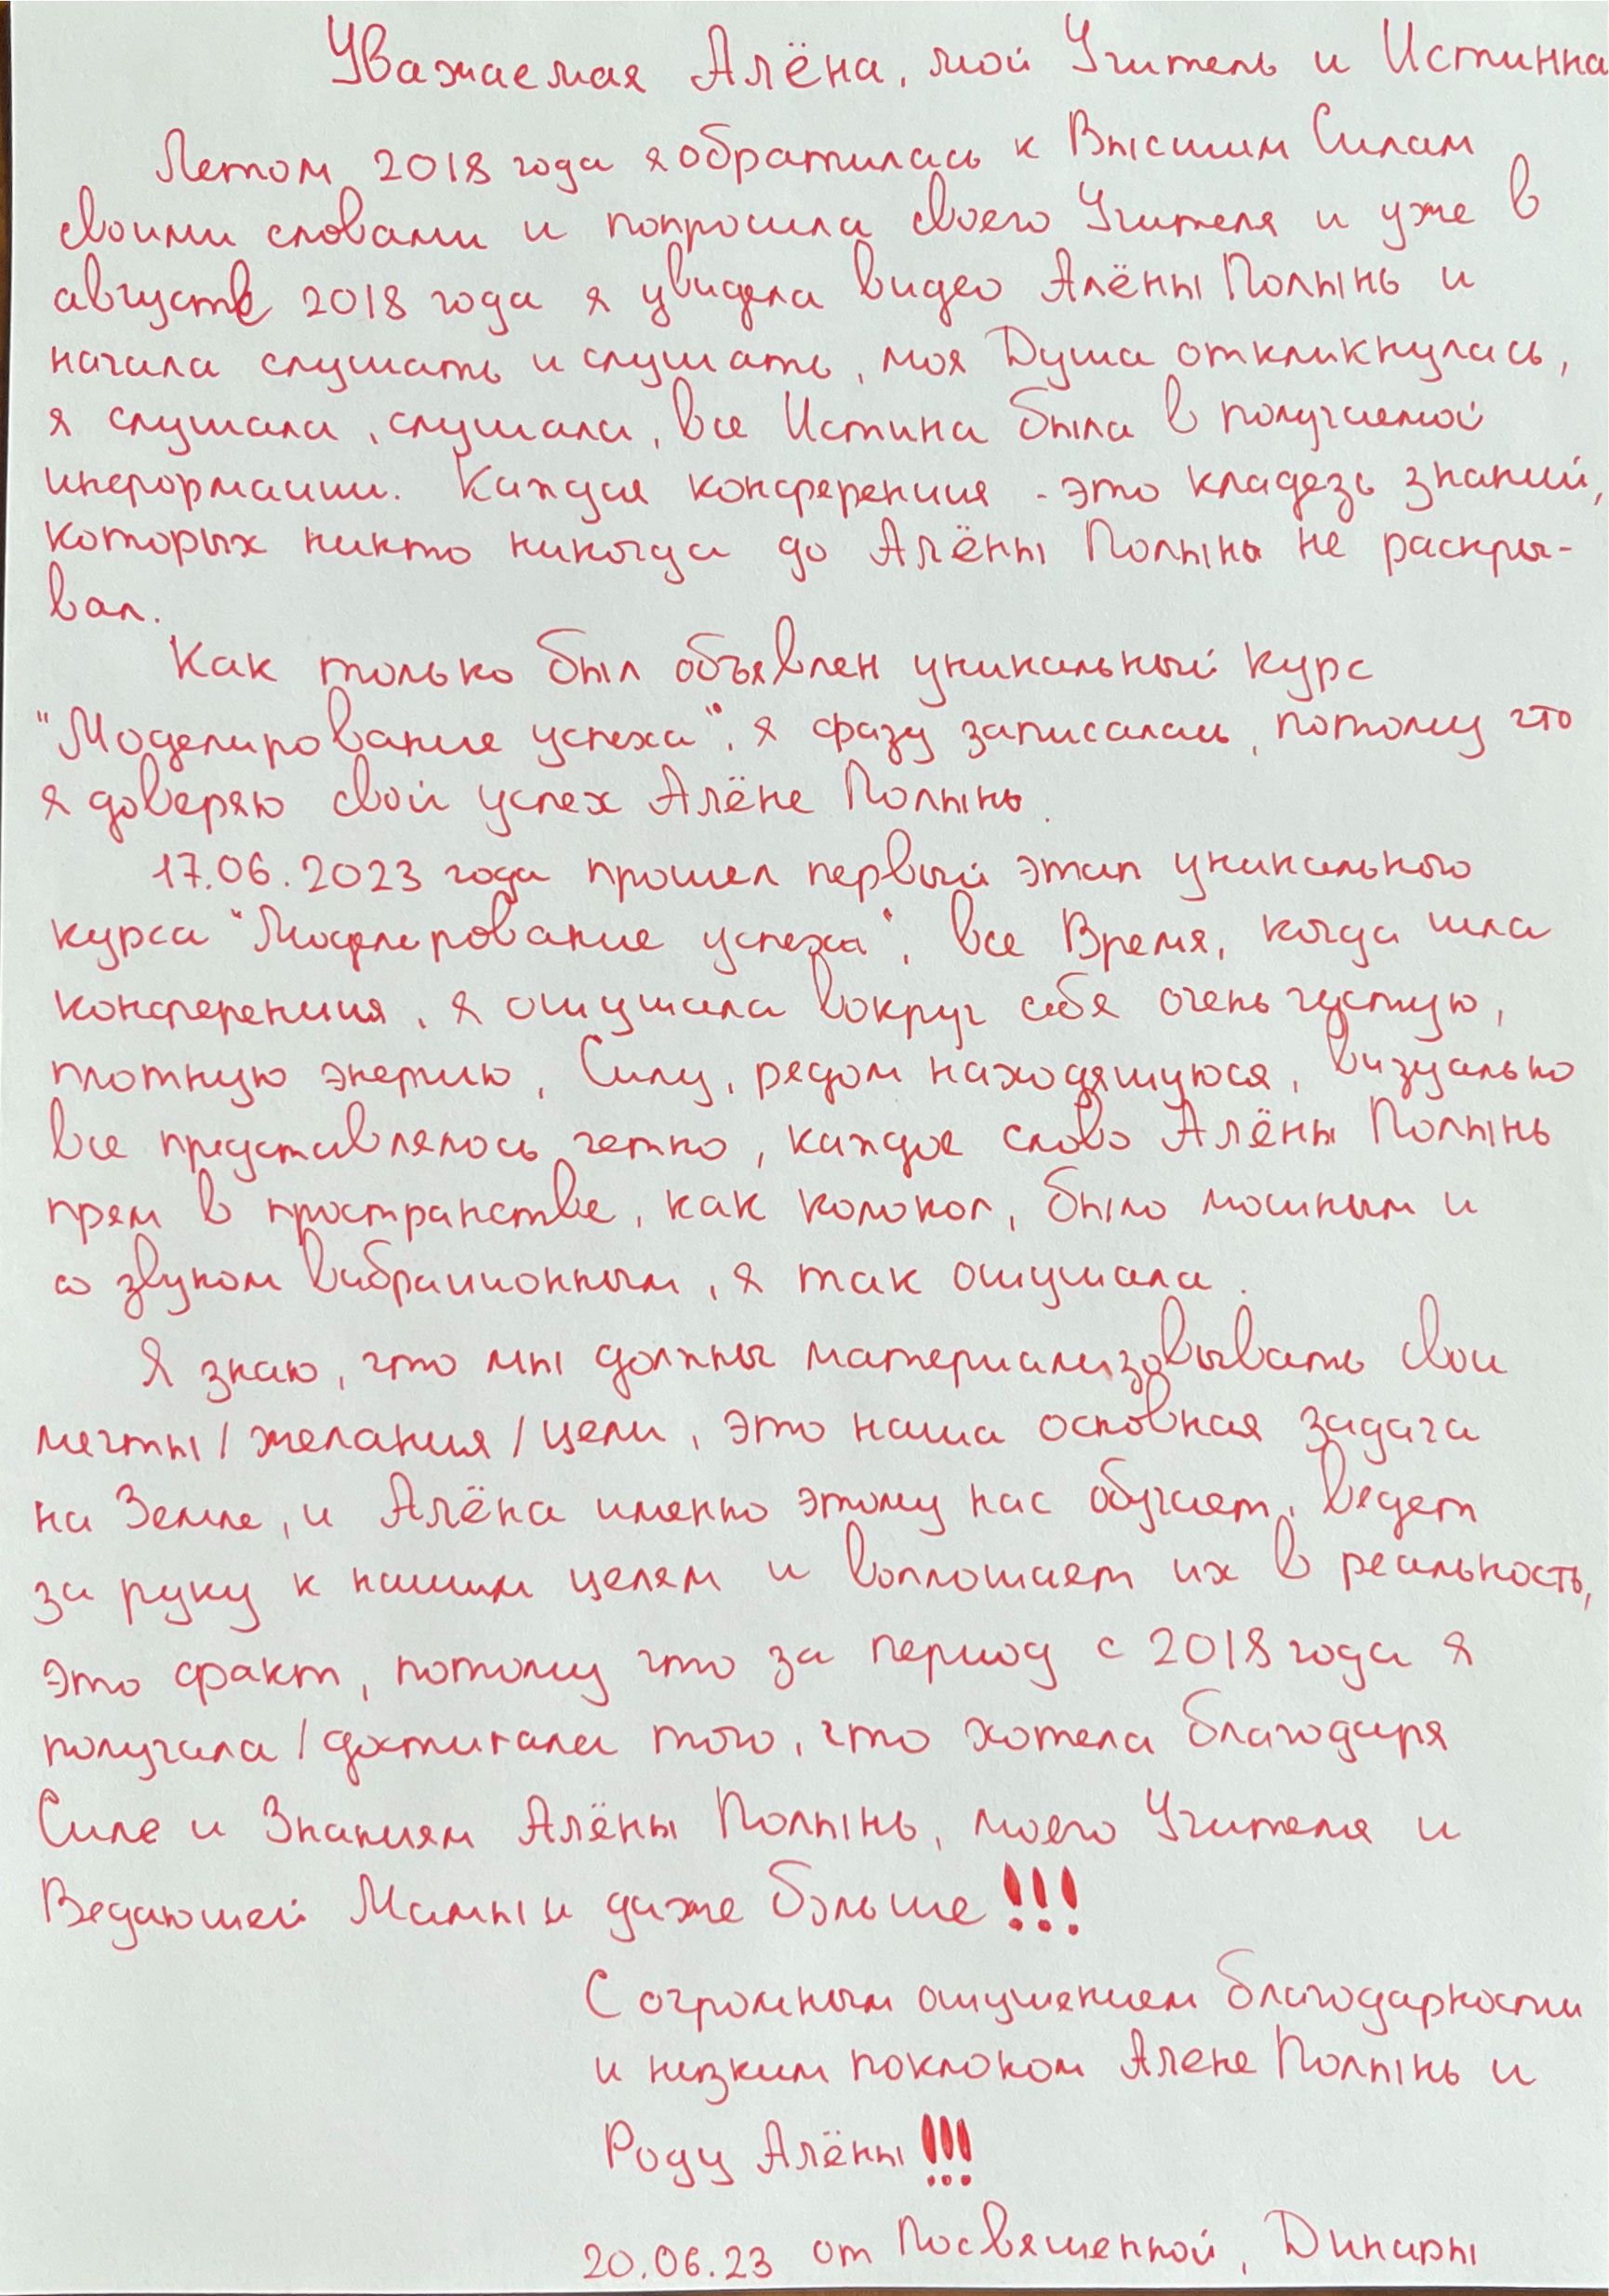 Уважаемая Алёна, мой Учитель и Истинна
Летом 2018 года я обратилась к Высшим Силам
своими словами и попросила своего Учителя и уже в
августе 2018 года я увидела видео Алёны Полынь и
начала слушать и слушать, моя Душа откликнулась,
я слушала, слушала, все Истина была в получаемой
информации. Каждая конференция - это кладезь знаний,
которых никто никогда до Алёны Полынь не раскры-
вал.
Как только был объявлен уникальный курс
"Моделирование успеха", я сразу записалась, потому что
я доверяю свой успех Алёне Полынь.
17.06.2023 года прошел первый этап уникального
курса "Моделирование успеха", все Время, когда шла
конференция, я ощущала вокруг себя очень густую,
плотную энергию, Силу, рядом находящуюся, визуально
все представлялось четко, каждое слово Алёны Полынь
прям в пространстве, как колокол, было мощным и
со звуком вибрационным, я так ощущала.
Я знаю, что мы должны материализовывать свои
мечты/желания/цели, это наша основная задача
на Земле, и Алёна именно этому нас обучает, ведет
за руку к нашим целям и воплощает их в реальность,
это факт, потому что за период с 2018 года я
получала/достигала того, что хотела благодаря
Силе и Знаниям Алёны Полынь, моего Учителя и
Ведающей Мамы и даже больше!!!
С огромным ощущением благодарности
и низким поклоном Алене Полынь и
Роду Алёны!!!
20.06.23 от Посвященной, Динары